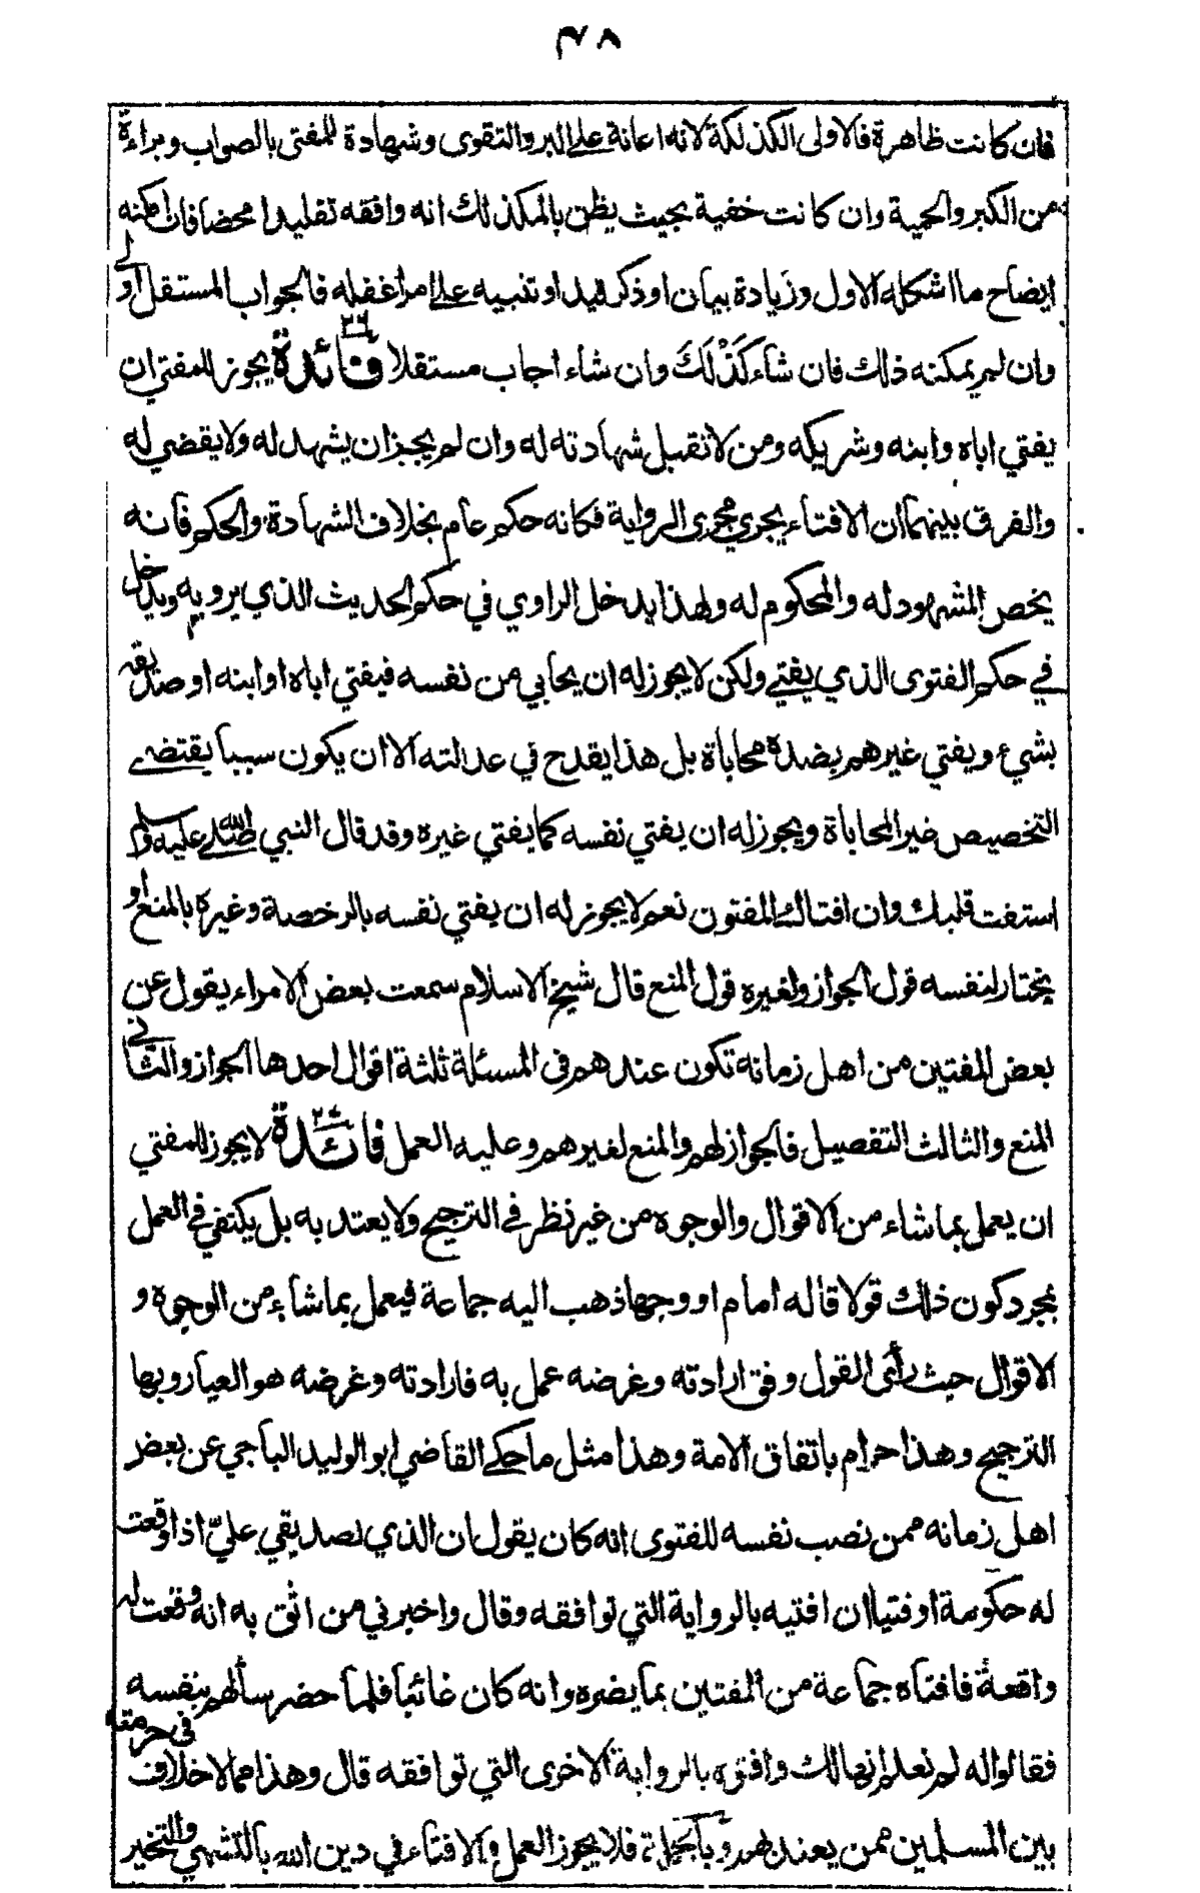 ٤٨
فان كانت ظاهرة فالاولى الكذلكة لانه اعانة على البر والتقوى وشهادة للمفتي بالصواب وبراءة
من الكبر والحمية وان كانت خفية بحيث يظن بالمكذلك انه وافقه تقليدا محضا فان امكنه
ايضاح ما اشكله الاول وزيادة بيان او ذكر قيد او تنبيه على امر اغفله فالجواب المستقل اولى
وان لم يمكنه ذلك فان شاء كَذْلَكَ وان شاء اجاب مستقلا فائدة ٣٦ يجوز للمفتي ان
يفتي اباه وابنه وشريكه ومن لا تقبل شهادته له وان لم يجز ان يشهد له ولا يقضي له
والفرق بينهما ان الافتاء يجري مجرى الرواية فكانه حكم عام بخلاف الشهادة والحكم فانه
يخص المشهود له والمحكوم له ولهذا يدخل الراوي في حكم الحديث الذي يرويه ويدخل
في حكم الفتوى الذي يفتي ولكن لا يجوز له ان يحابي من نفسه فيفتي اباه او ابنه او صديقه
بشيء ويفتي غيرهم بضده محاباة بل هذا يقدح في عدالته الا ان يكون سببا يقتضي
التخصيص غير المحاباة ويجوز له ان يفتي نفسه كما يفتي غيره وقد قال النبي صلى الله عليه وسلم
استفت قلبك وان افتاك المفتون نعم لا يجوز له ان يفتي نفسه بالرخصة وغيره بالمنع او
يختار لنفسه قول الجواز ولغيره قول المنع قال شيخ الاسلام سمعت بعض الامراء يقول عن
بعض المفتين من اهل زمانه تكون عندهم في المسئلة ثلثة اقوال احدها الجواز والثاني
المنع والثالث التفصيل فالجواز لهم والمنع لغيرهم وعليه العمل فائدة لا يجوز للمفتي
ان يعمل بما شاء من الاقوال والوجوه من غير نظر في الترجيح ولا يعتد به بل يكتفي في العمل
بمجرد كون ذلك قولا قاله امام او وجها ذهب اليه جماعة فيعمل بما شاء من الوجوه و
الاقوال حيث رأى القول وفق ارادته وغرضه عمل به فارادته وغرضه هو العيار وبها
الترجيح وهذا حرام باتفاق الامة وهذا مثل ما حكى القاضي ابو الوليد الباجي عن بعض
اهل زمانه ممن نصب نفسه للفتوى انه كان يقول ان الذي لصديقي عليّ اذا وقعت
له حكومة او فتيا ان افتيه بالرواية التي توافقه وقال واخبرني من اثق به انه وقعت له
واقعة فافتاه جماعة من المفتين بما يضره وانه كان غائبا فلما حضر سألهم بنفسه
فقالوا له لم نعلم انها لك وافتوه بالرواية الاخرى التي توافقه قال وهذا مما لا خلاف في حرمته
بين المسلمين ممن يعتد بهم وبالجملة فلا يجوز العمل والافتاء في دين الله بالتشهي والتخير